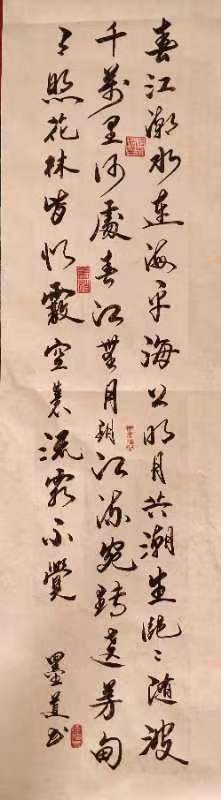 春江潮水連海平海上明月共潮生灔灔隨波
千萬里何處春江無月明江流宛轉遶芳甸
月照花林皆似霰空裏流霜不覺
墨 书